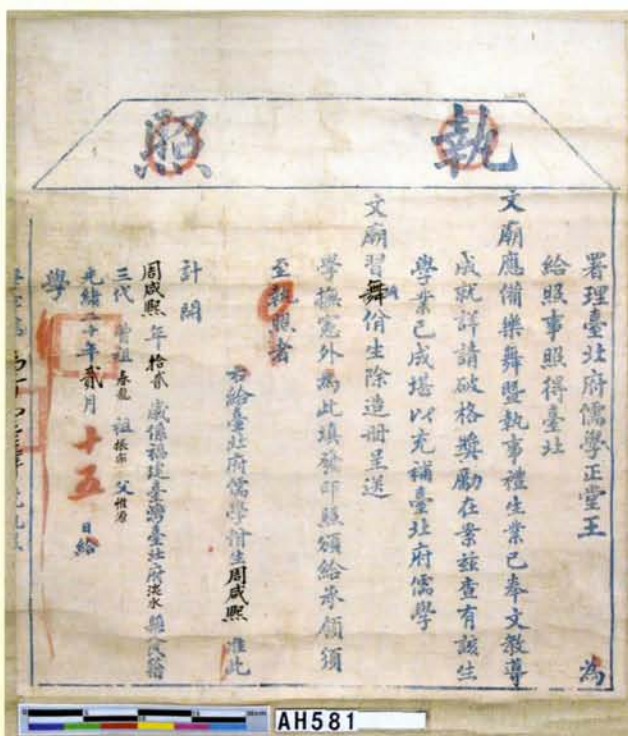 執照
署理臺北府儒學正堂王 為
給照事照得臺北
文廟應備樂舞暨執事禮生業已奉文教導
成就詳請破格獎勵在案茲查有該生
學業已成堪以充補臺北府儒學
文廟習舞佾生除造冊呈送
學撫憲外為此填發印照頒給承領須
至執照者
右給臺北府儒學佾生周咸熙 准此
計開
周咸熙年拾貳歲係福建臺灣臺北府淡水縣民籍
三代 曾祖春龍 祖振宗 父
光緒二十年貳月十五日給
學
AH581